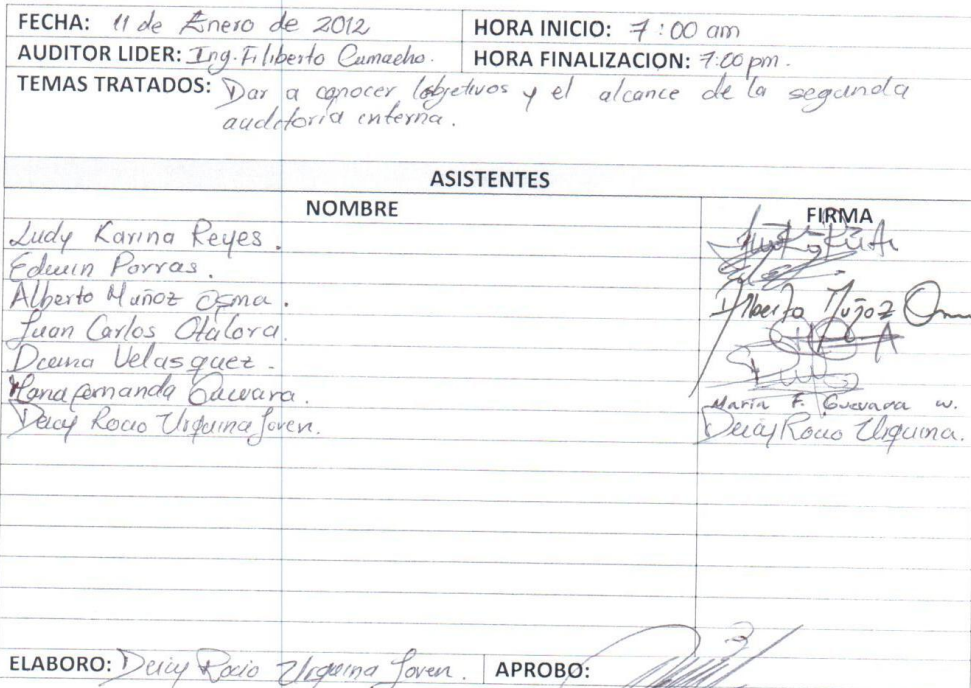 FECHA: 11 de Enero de 2012 HORA INICIO: 7:00 am
AUDITOR LIDER: Ing. Filiberto Camacho. HORA FINALIZACION: 7:00 pm.
TEMAS TRATADOS: Dar a conocer objetivos y el alcance de la segunda
auditoria interna.
ASISTENTES
NOMBRE FIRMA
Ludy Karina Reyes.
Edwin Porras.
Alberto Muñoz Osma. Alberto Muñoz
Juan Carlos Otalora.
Velasquez.
Maria fernanda Guevara. Maria F. Guevara w.
Deicy Rocio Urquina Joven. Deicy Rocio Urquina.
ELABORO: Deicy Rocio Urquina Joven. APROBO: